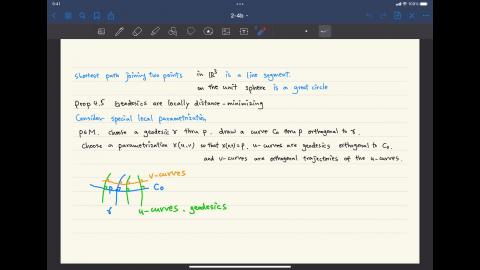 9:41
2-4b
Shortest path joining two points in ℝ³ is a line segment.
on the unit sphere is a great circle
Prop 4.5 Geodesics are locally distance-minimizing
Consider special local parametrization
p∈M. choose a geodesic γ thru p. draw a curve C₀ thru p orthogonal to γ.
Choose a parametrization x(u,v) so that x(0,0)=p. u-curves are geodesics orthogonal to C₀.
and v-curves are orthogonal trajectories of the u-curves.
v-curves
p
C₀
γ
u-curves, geodesics